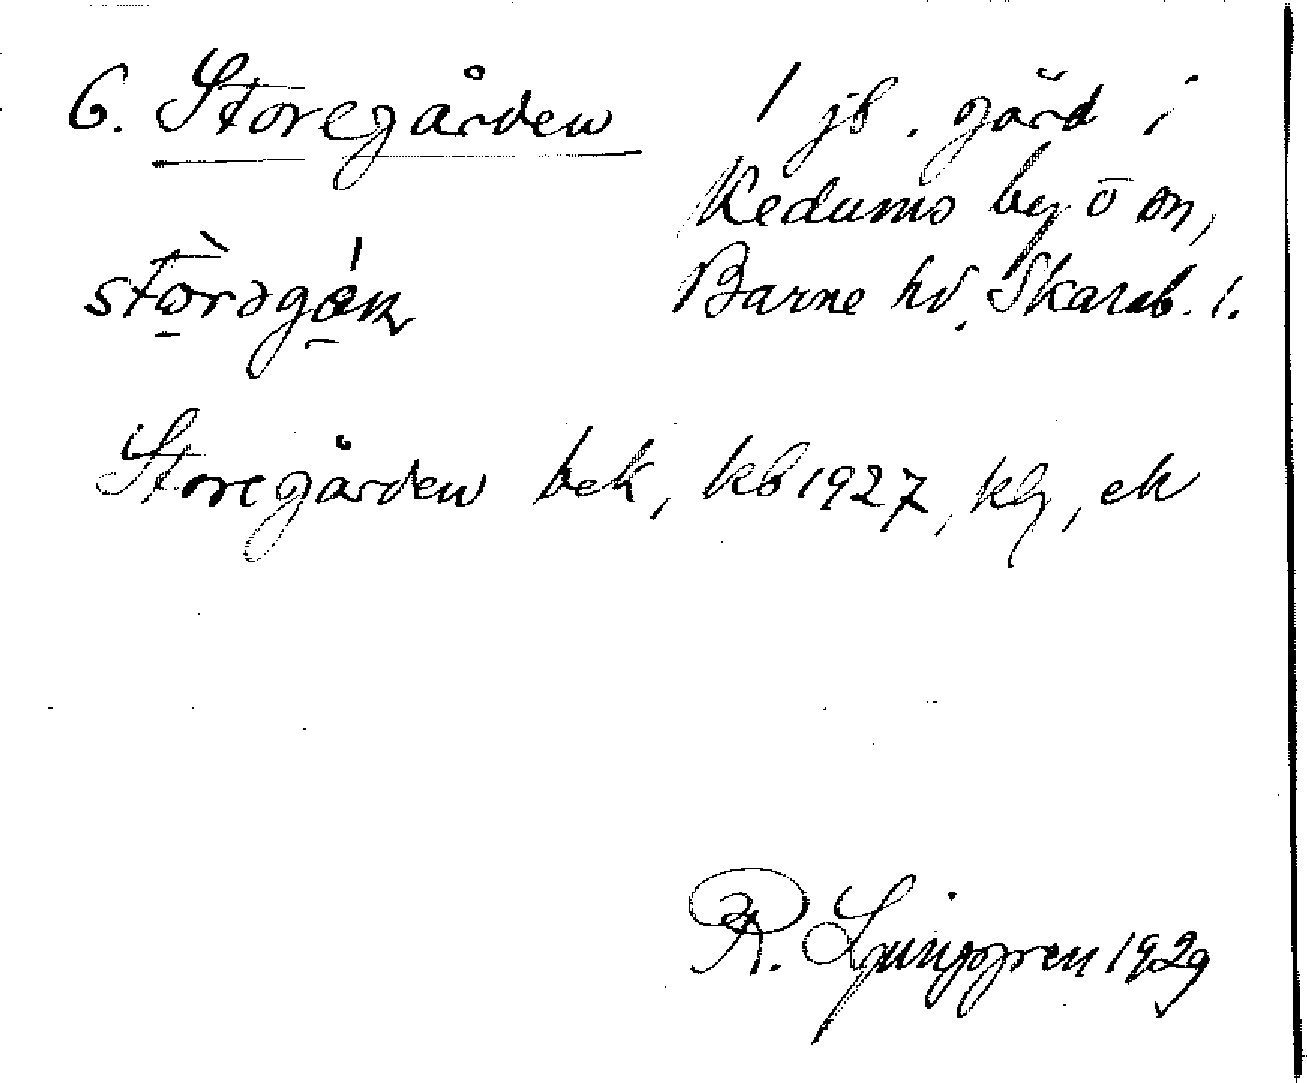 6. Storegården 1 jb. gård i
Kedums by o sn,
stòrəgán Barne hd. Skarab. l.
Storegården bek, kb 1927, klg, ek
R. Ljunggren 1929